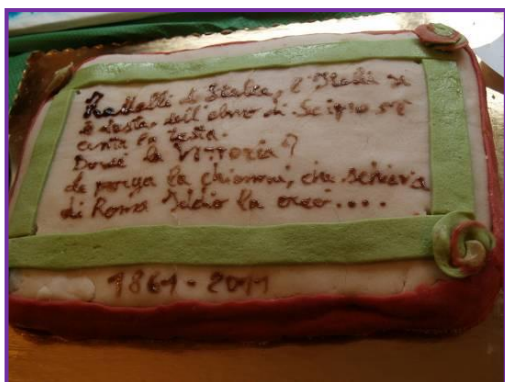 Fratelli di Italia, l'Italia s'
è desta, dell'elmo di Scipio s'è
cinta la testa.
Dov'è la Vittoria?
le porga la chioma, che schiava
di Roma Iddio la creò....
1861-2011